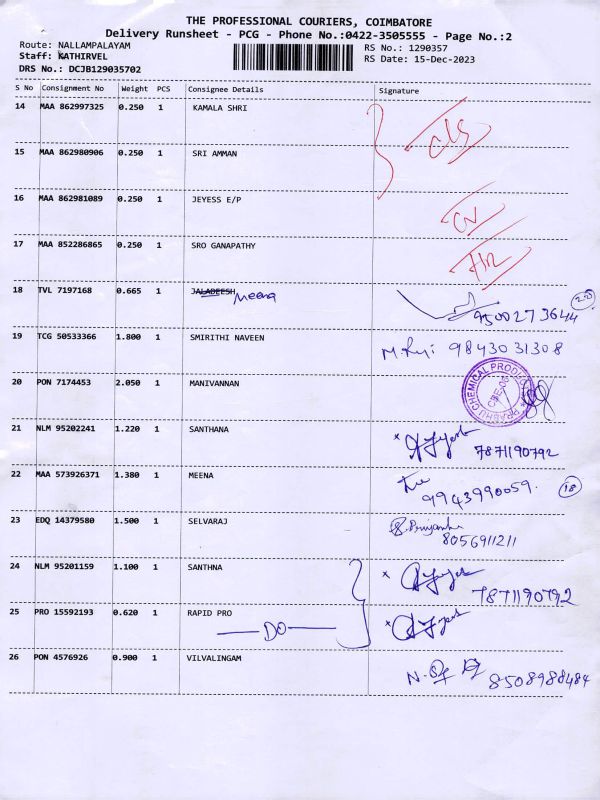 THE PROFESSIONAL COURIERS, COIMBATORE
Delivery Runsheet - PCG - Phone No.:0422-3505555 - Page No.:2
Route: NALLAMPALAYAM RS No.: 1290357
Staff: KATHIRVEL RS Date: 15-Dec-2023
DRS No.: DCJB129035702
S No Consignment No Weight PCS Consignee Details Signature
14 MAA 862997325 0.250 1 KAMALA SHRI
15 MAA 862980906 0.250 1 SRI AMMAN
16 MAA 862981089 0.250 1 JEYESS E/P
17 MAA 852286865 0.250 1 SRO GANAPATHY
18 TVL 7197168 0.665 1 JALADEESH Meena 9500273644
19 TCG 50533366 1.800 1 SMIRITHI NAVEEN 9843031308
20 PON 7174453 2.050 1 MANIVANNAN
PRABHU CHEMICAL PRODUCTS
21 NLM 95202241 1.220 1 SANTHANA 7871190792
22 MAA 573926371 1.380 1 MEENA 9943990059. 18
23 EDQ 14379580 1.500 1 SELVARAJ
8056911211
24 NLM 95201159 1.100 1 SANTHNA 7871190792
25 PRO 15592193 0.620 1 RAPID PRO
DO
26 PON 4576926 0.900 1 VILVALINGAM 8508988484